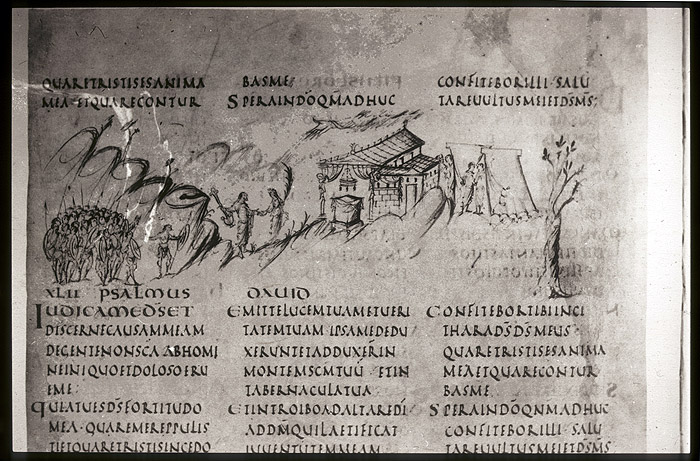 QUARETRISTISESANIMA
MEA·ETQUARECONTUR
BASME
SPERAINDŌQMADHUC
CONFITEBORILLI·SALU
TAREUULTUSMEIETDSMS:
XLII PSALMUS DAUID
IUDICAMEDSET
DISCERNECAUSAMMEAM
DEGENTENONSCA ABHOMI
NEINIQUOETDOLOSOERU
EME:
QUIATUESDSFORTITUDO
MEA·QUAREMEREPPULIS
TIETQUARETRISTISINCEDO
EMITTELUCEMTUAMETUERI
TATEMTUAM IPSAMEDEDU
XERUNTETADDUXERIN
MONTEMSCMTUU ETIN
TABERNACULATUA
ETINTROIBOADALTAREDI
ADDMQUILAETIFICAT
IUUENTUTEMMEAM
CONFITEBORTIBIINCI
THARADSDSMEUS
QUARETRISTISESANIMA
MEAETQUARECONTUR
BASME
SPERAINDŌQNMADHUC
CONFITEBORILLI·SALU
TAREUULTUSMEIETDSMS